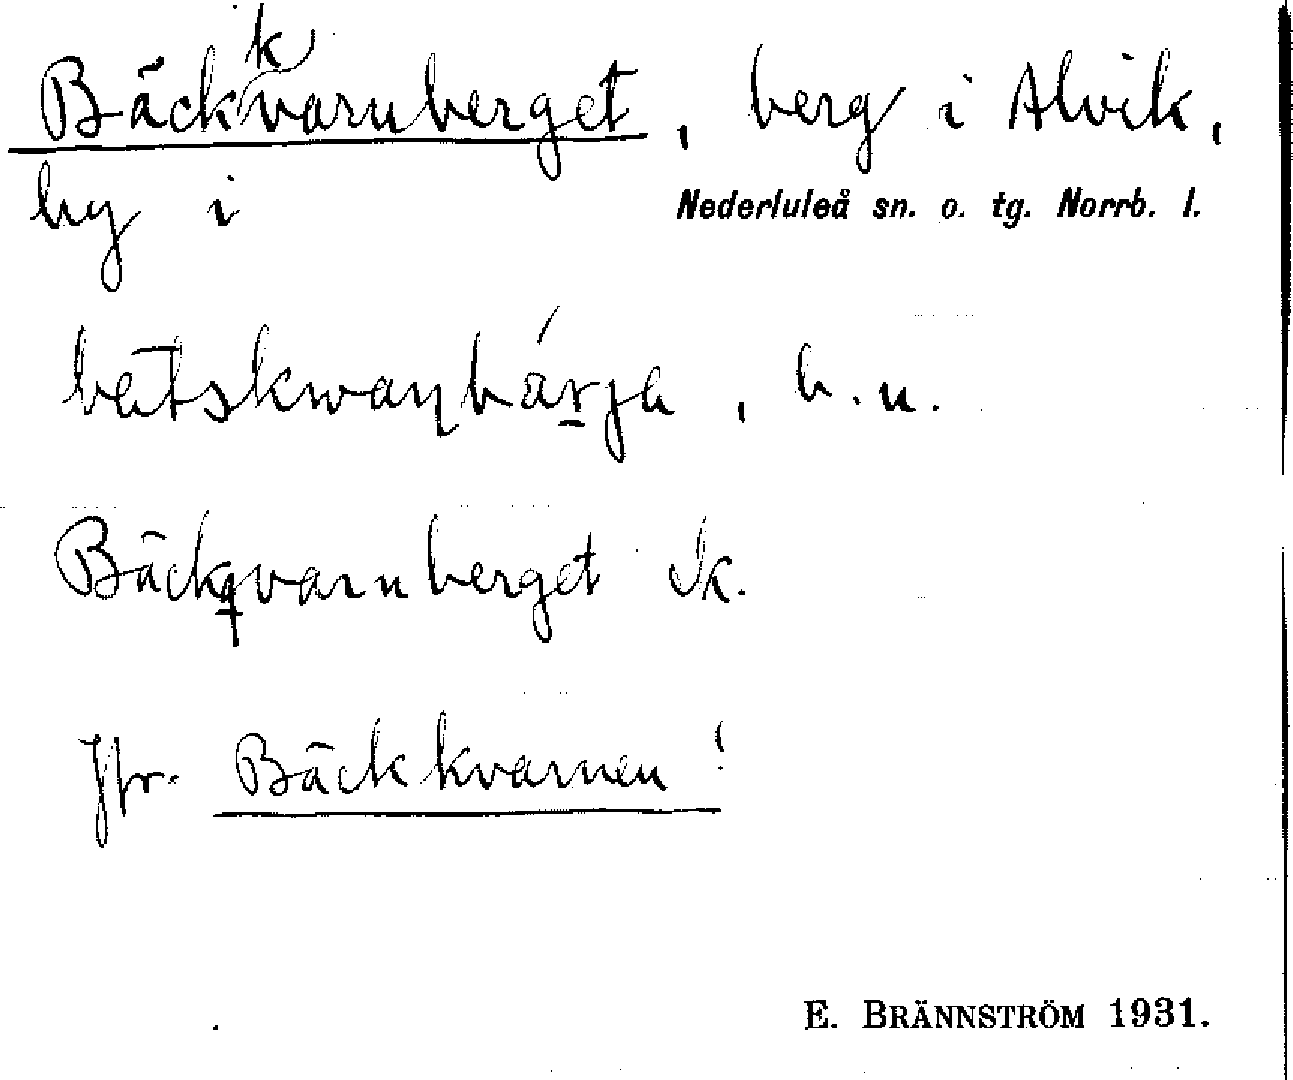 Bäckkvarnberget, berg i Alvik,
by i Nederluleå sn. o. tg. Norrb. l.
b. u.
Bäckqvarnberget Jk.
Jfr. Bäckkvarnen!
E. BRÄNNSTRÖM 1931.